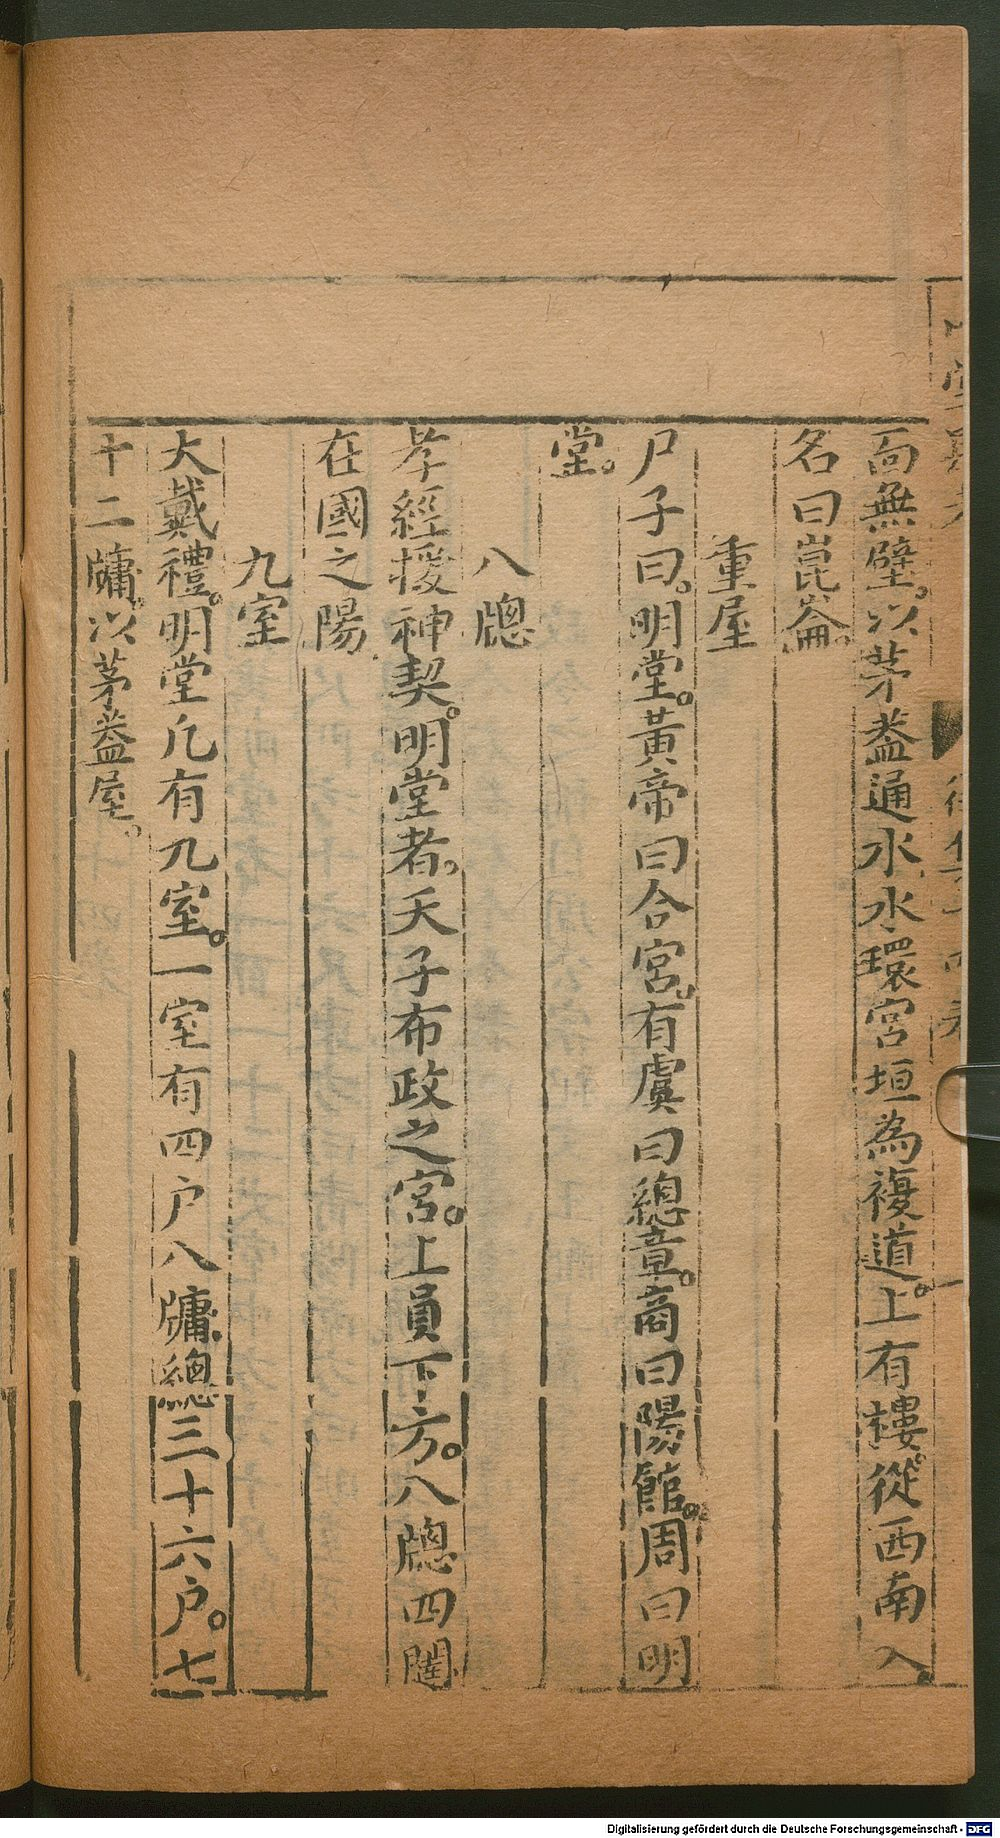 面無壁。以茅葢通水水環宮垣為複道。上有樓。從西南入。
名曰崑崙。
重屋
尸子曰。明堂。黃帝曰合宮。有虞曰總章。商曰陽館。周曰明
堂。
八牎
孝經援神契。明堂者。天子布政之宮。上員下方。八牎四闥。
在國之陽
九室
大戴禮。明堂凢有九室。一室有四户八牗。總三十六户。七
十二牗。以茅葢屋。
Digitalisierung gefördert durch die Deutsche Forschungsgemeinschaft - DFG